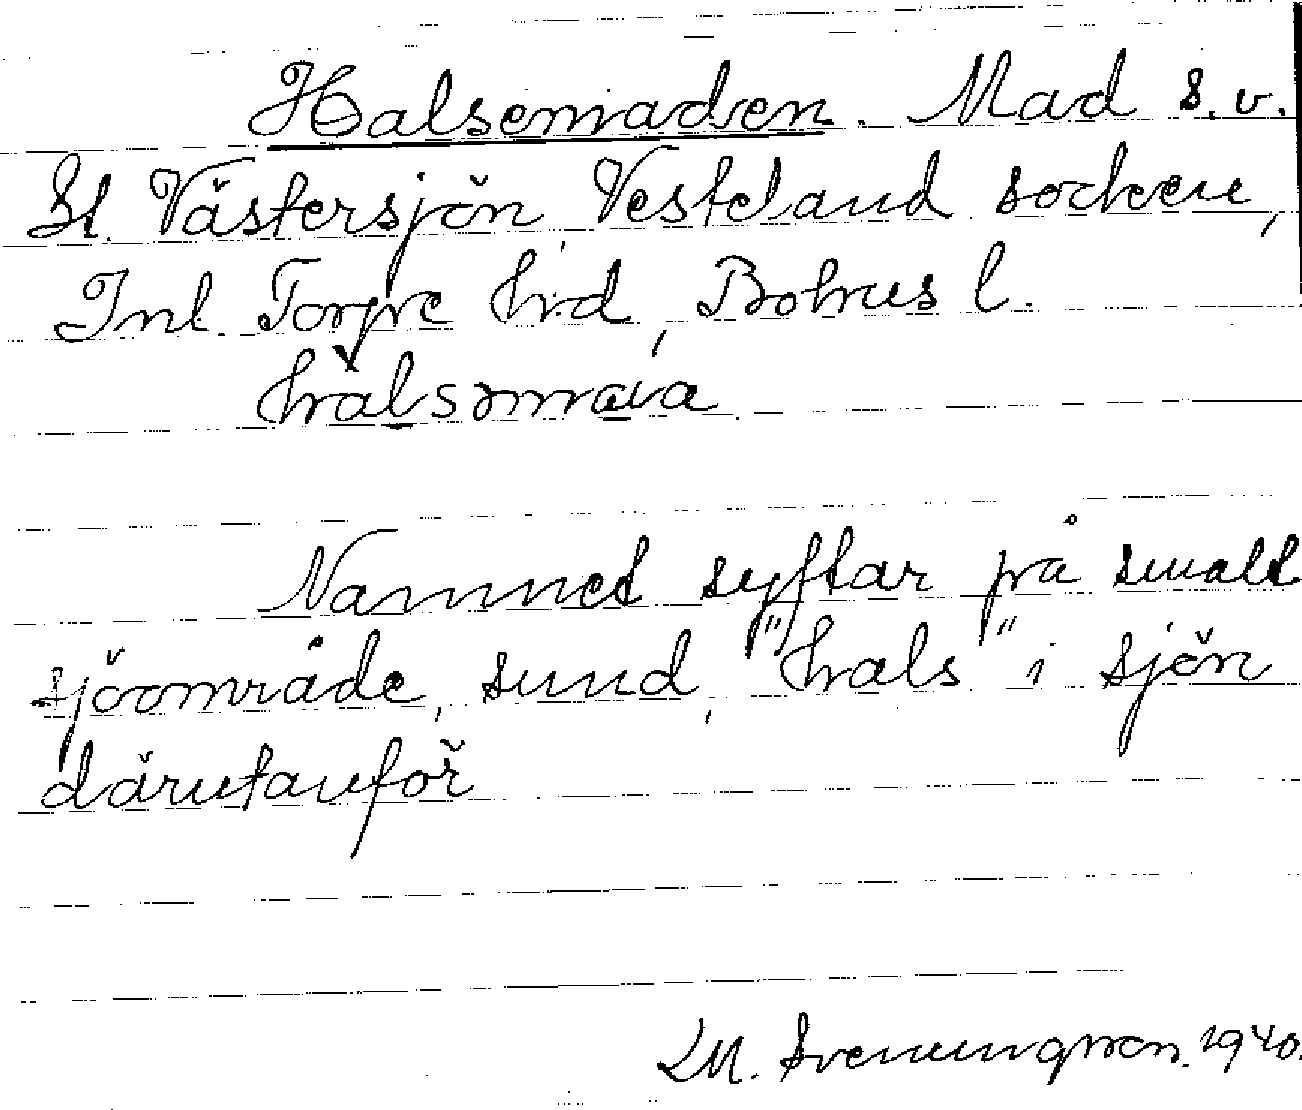 Halsemaden. Mad s.v.
St. Västersjön, Vesteland socken,
Inl. Torpe hd, Bohus l.
halsəmava
Namnet syftar på smalt
sjöområde, sund, "hals" i sjön
därutanför
Svenungsson. 1940.